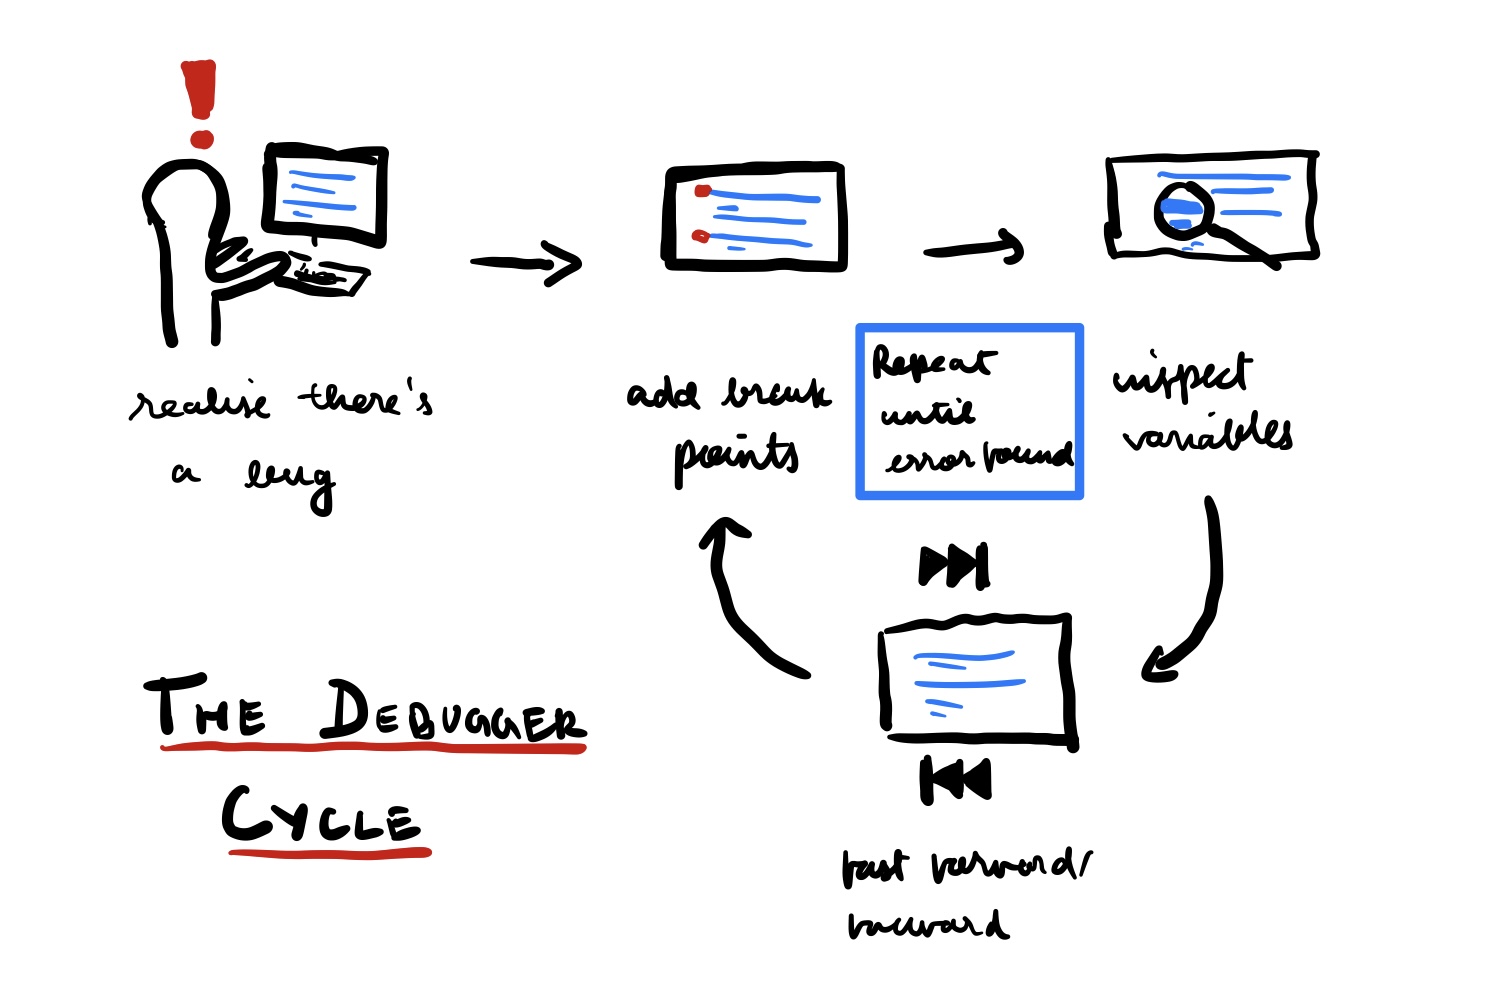 realise there's
a bug
add break
points
Repeat
until
error found
inspect
variables
fast forward/
backward
THE DEBUGGER
CYCLE